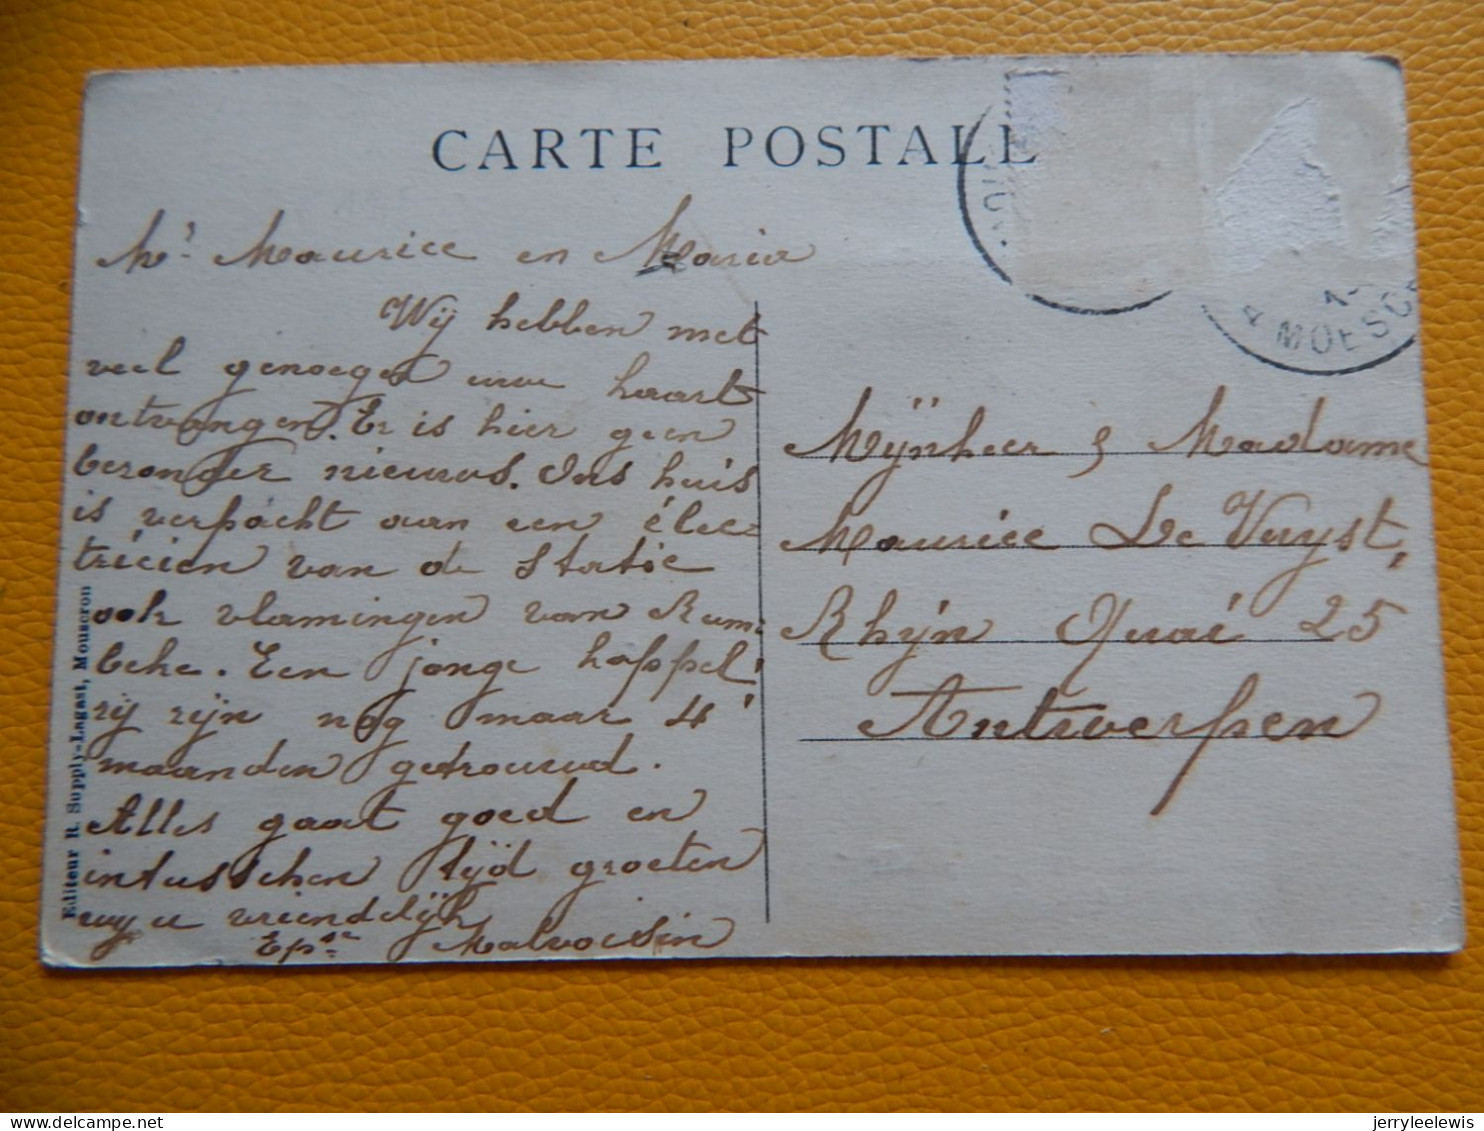 CARTE POSTALE
Mr. Maurice en Maria
Wij hebben met
veel genoegen uwe kaart
ontvangen. Er is hier geen
bezonder nieuws. Ons huis
is verpacht aan een élec-
tricien van de Statie
ook vlamingen van Rum-
beke. Een jonge koppel
zij zijn nog maar 4
maanden getrouwd.
Alles gaat goed en
intusschen tijd groeten
wy u vriendelijk
Epse Malvoisin
Editeur R. Supply-Lagast, Mouscron
4 MOESC
Mijnheer & Madame
Maurice De Vuyst,
Rhijn Quai 25
Antwerpen
jerryleelewis